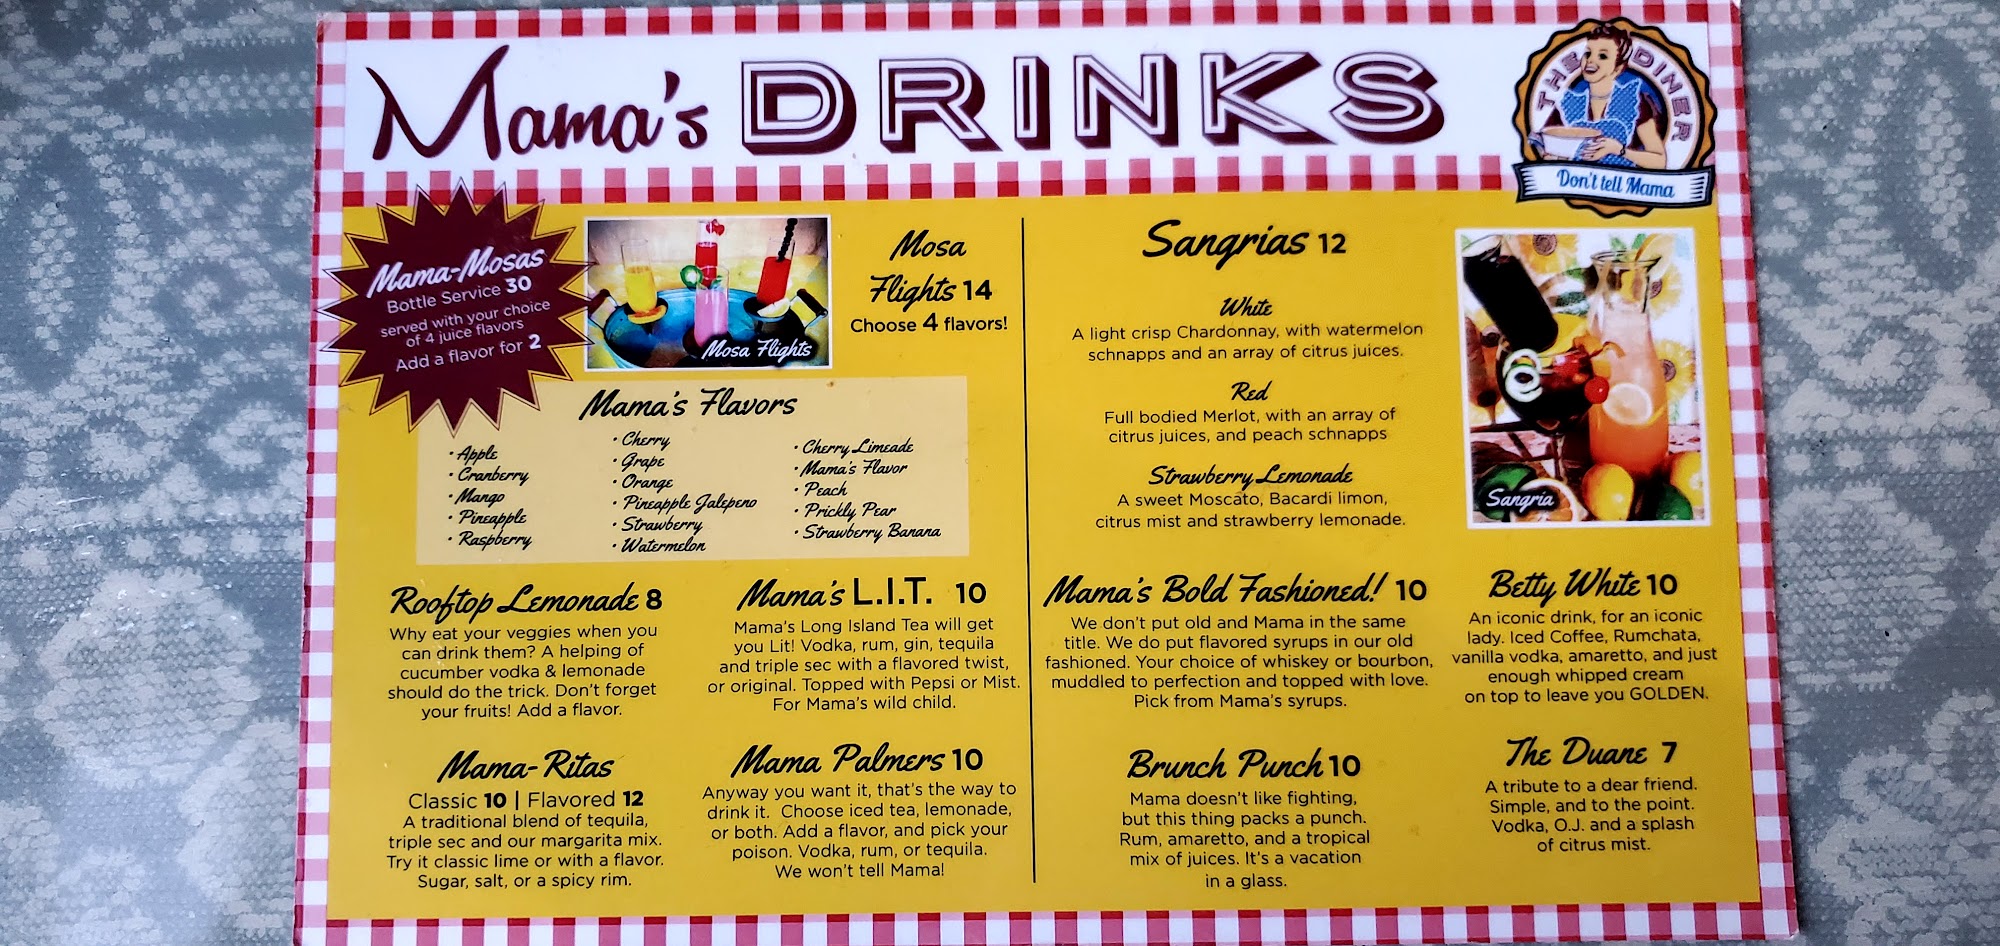 Mama's DRINKS
THE DINER
Don't tell Mama
Mama-Mosas
Bottle Service 30
served with your choice
of 4 juice flavors
Add a flavor for 2
Mosa Flights
Mosa
Flights 14
Choose 4 flavors!
Mama's Flavors
• Apple
• Cranberry
• Mango
• Pineapple
• Raspberry
• Cherry
• Grape
• Orange
• Pineapple Jalepeno
• Strawberry
• Watermelon
• Cherry Limeade
• Mama's Flavor
• Peach
• Prickly Pear
• Strawberry Banana
Rooftop Lemonade 8
Why eat your veggies when you
can drink them? A helping of
cucumber vodka & lemonade
should do the trick. Don't forget
your fruits! Add a flavor.
Mama's L.I.T. 10
Mama's Long Island Tea will get
you Lit! Vodka, rum, gin, tequila
and triple sec with a flavored twist,
or original. Topped with Pepsi or Mist.
For Mama's wild child.
Mama-Ritas
Classic 10 | Flavored 12
A traditional blend of tequila,
triple sec and our margarita mix.
Try it classic lime or with a flavor.
Sugar, salt, or a spicy rim.
Mama Palmers 10
Anyway you want it, that's the way to
drink it. Choose iced tea, lemonade,
or both. Add a flavor, and pick your
poison. Vodka, rum, or tequila.
We won't tell Mama!
Sangrias 12
White
A light crisp Chardonnay, with watermelon
schnapps and an array of citrus juices.
Red
Full bodied Merlot, with an array of
citrus juices, and peach schnapps
Strawberry Lemonade
A sweet Moscato, Bacardi limon,
citrus mist and strawberry lemonade.
Sangria
Mama's Bold Fashioned! 10
We don't put old and Mama in the same
title. We do put flavored syrups in our old
fashioned. Your choice of whiskey or bourbon,
muddled to perfection and topped with love.
Pick from Mama's syrups.
Betty White 10
An iconic drink, for an iconic
lady. Iced Coffee, Rumchata,
vanilla vodka, amaretto, and just
enough whipped cream
on top to leave you GOLDEN.
Brunch Punch 10
Mama doesn't like fighting,
but this thing packs a punch.
Rum, amaretto, and a tropical
mix of juices. It's a vacation
in a glass.
The Duane 7
A tribute to a dear friend.
Simple, and to the point.
Vodka, O.J. and a splash
of citrus mist.